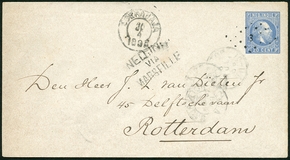 NED. INDIË
VIA
MARSEILLE
Den Heer J. L. van Dieten Jr
45 Delftsche vaart
Rotterdam